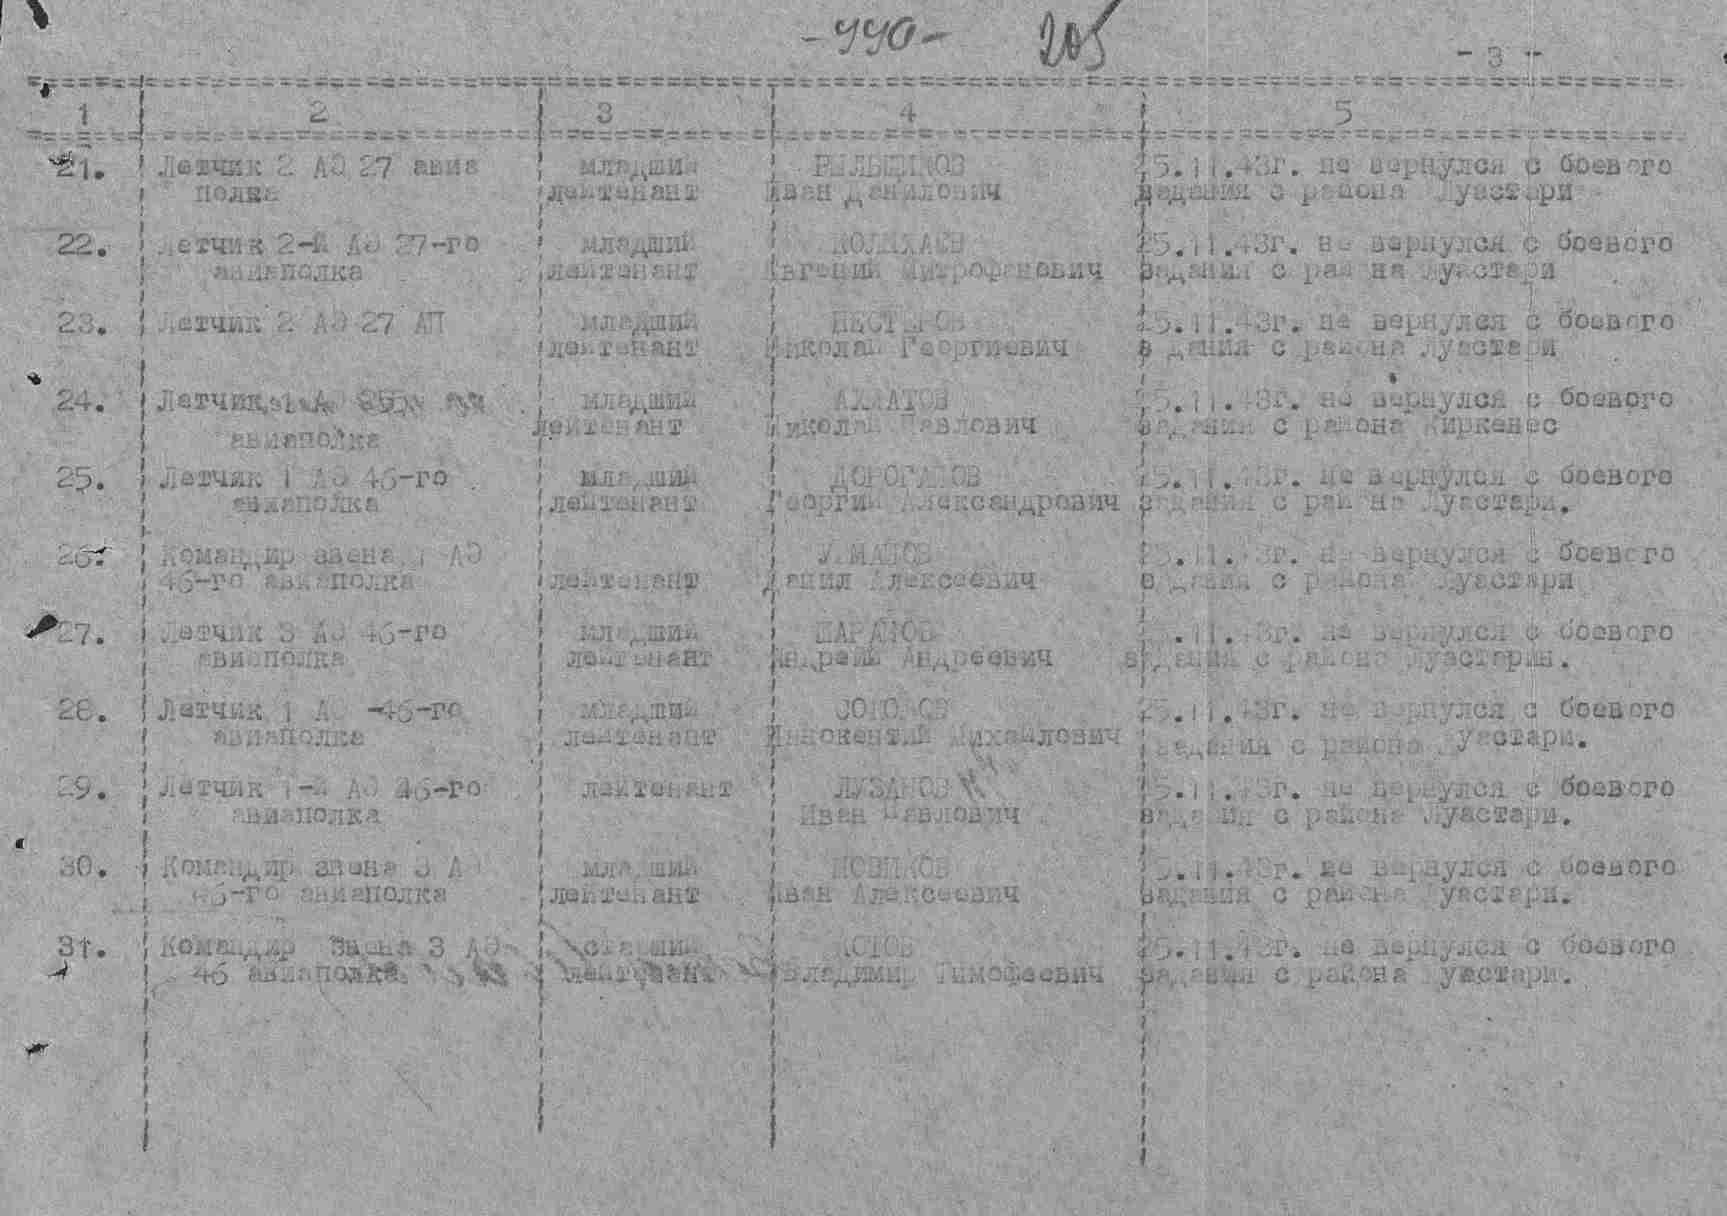 -440- 205
- 3 -
1 2 3 4 5
21. Летчик 2 АЭ 27 авиа младший 25.11.43г. не вернулся с боевого
полка лейтенант Иван Данилович задания с района Луастари
22. Летчик 2-й АЭ 27-го младший 25.11.43г. не вернулся с боевого
авиаполка лейтенант Евгений Митрофанович задания с района Луастари
23. Летчик 2 АЭ 27 АП младший НЕСТЕРОВ 25.11.43г. не вернулся с боевого
лейтенант Николай Георгиевич задания с района Луастари
24. Летчик 1 АЭ 255 младший АХМАТОВ 25.11.43г. не вернулся с боевого
авиаполка лейтенант Николай Павлович задания с района Киркенес
25. Летчик 1 АЭ 46-го младший 25.11.43г. не вернулся с боевого
авиаполка лейтенант Георгий Александрович задания с района Луастари.
26. Командир звена 1 АЭ 25.11.43г. не вернулся с боевого
46-го авиаполка лейтенант Данил Алексеевич задания с района Луастари
27. Летчик 3 АЭ 46-го младший 25.11.43г. не вернулся с боевого
авиаполка лейтенант Андрей Андреевич задания с района Луастарин.
28. Летчик 1 АЭ -46-го младший 25.11.43г. не вернулся с боевого
авиаполка лейтенант Иннокентий Михайлович задания с района Луастари.
29. Летчик 1-й АЭ 46-го лейтенант ЛУЗАНОВ 25.11.43г. не вернулся с боевого
авиаполка Иван Павлович задания с района Луастари.
30. Командир звена 3 АЭ младший НОВИКОВ 25.11.43г. не вернулся с боевого
46-го авиаполка лейтенант Иван Алексеевич задания с района Луастари.
31. Командир звена 3 АЭ старший КОТОВ 25.11.43г. не вернулся с боевого
46 авиаполка лейтенант Владимир Тимофеевич задания с района Луастари.